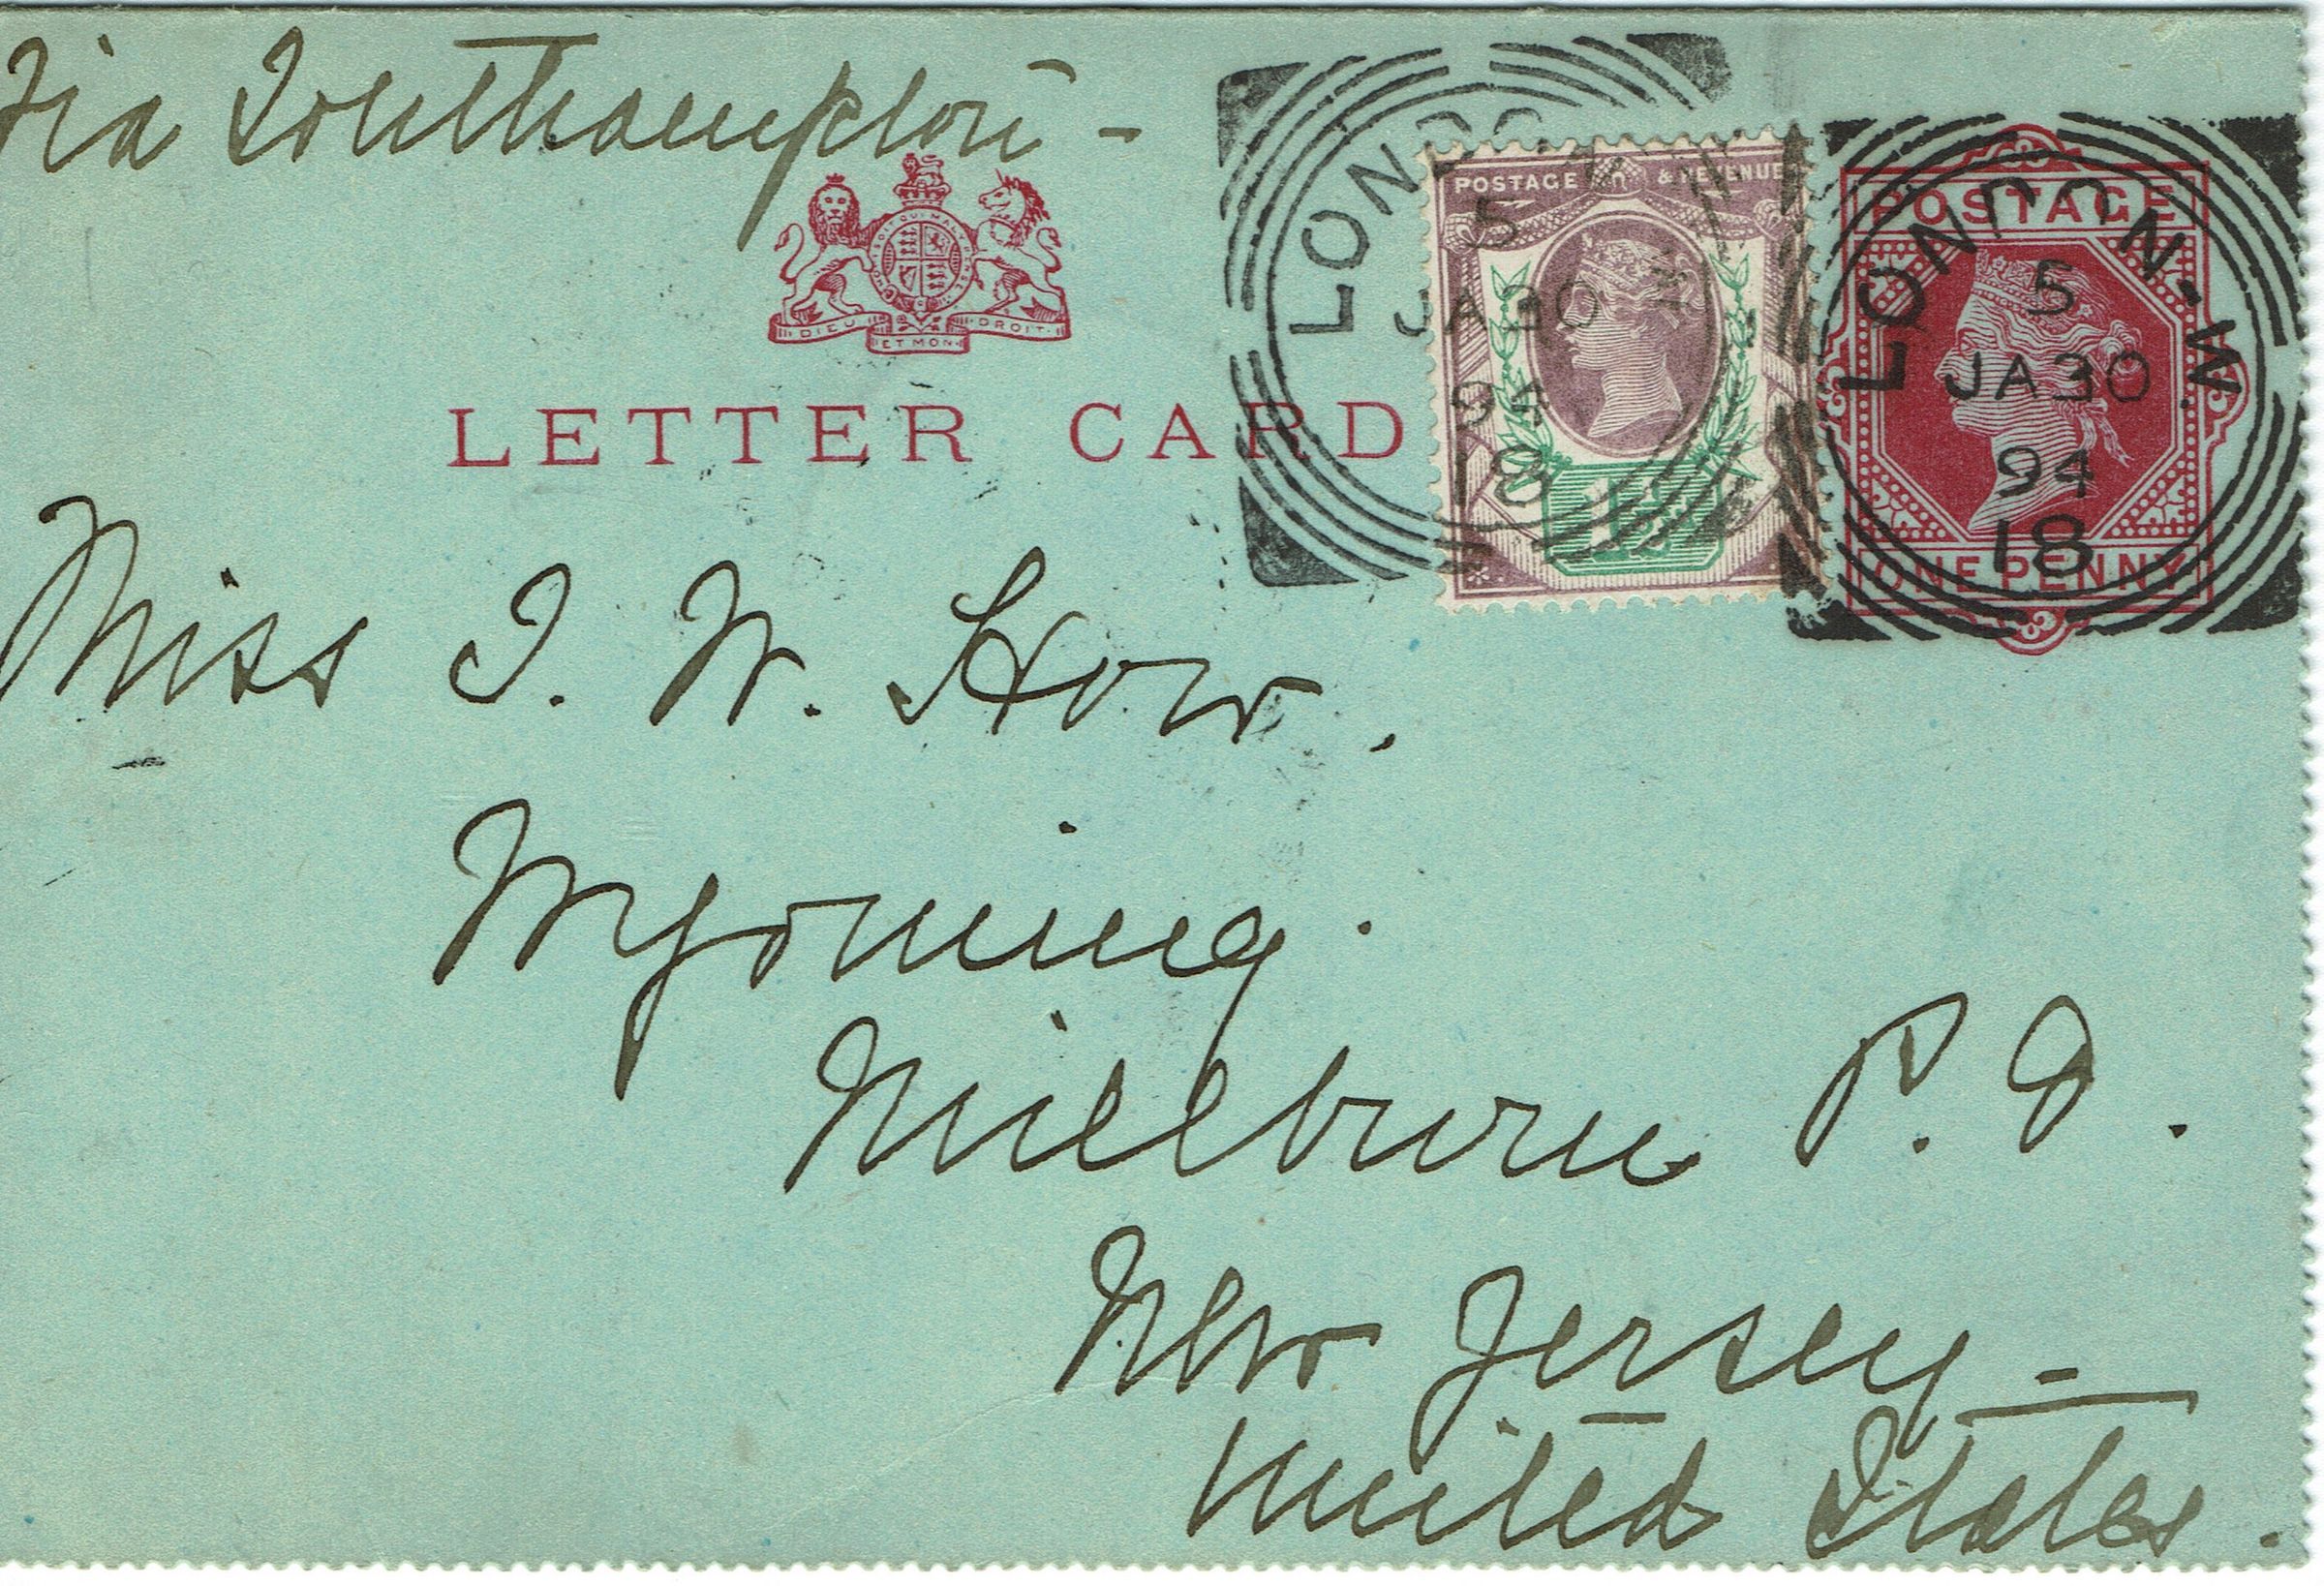 Via Southampton -
DIEU ET MON DROIT
LETTER CARD
POSTAGE & REVENUE
1½
LONDON
5
JA 30
94
18
POSTAGE
ONE PENNY
LONDON · W.
5
JA 30
94
18
Miss I. W. How.
Wyoming.
Millburn P. O.
New Jersey -
United States.